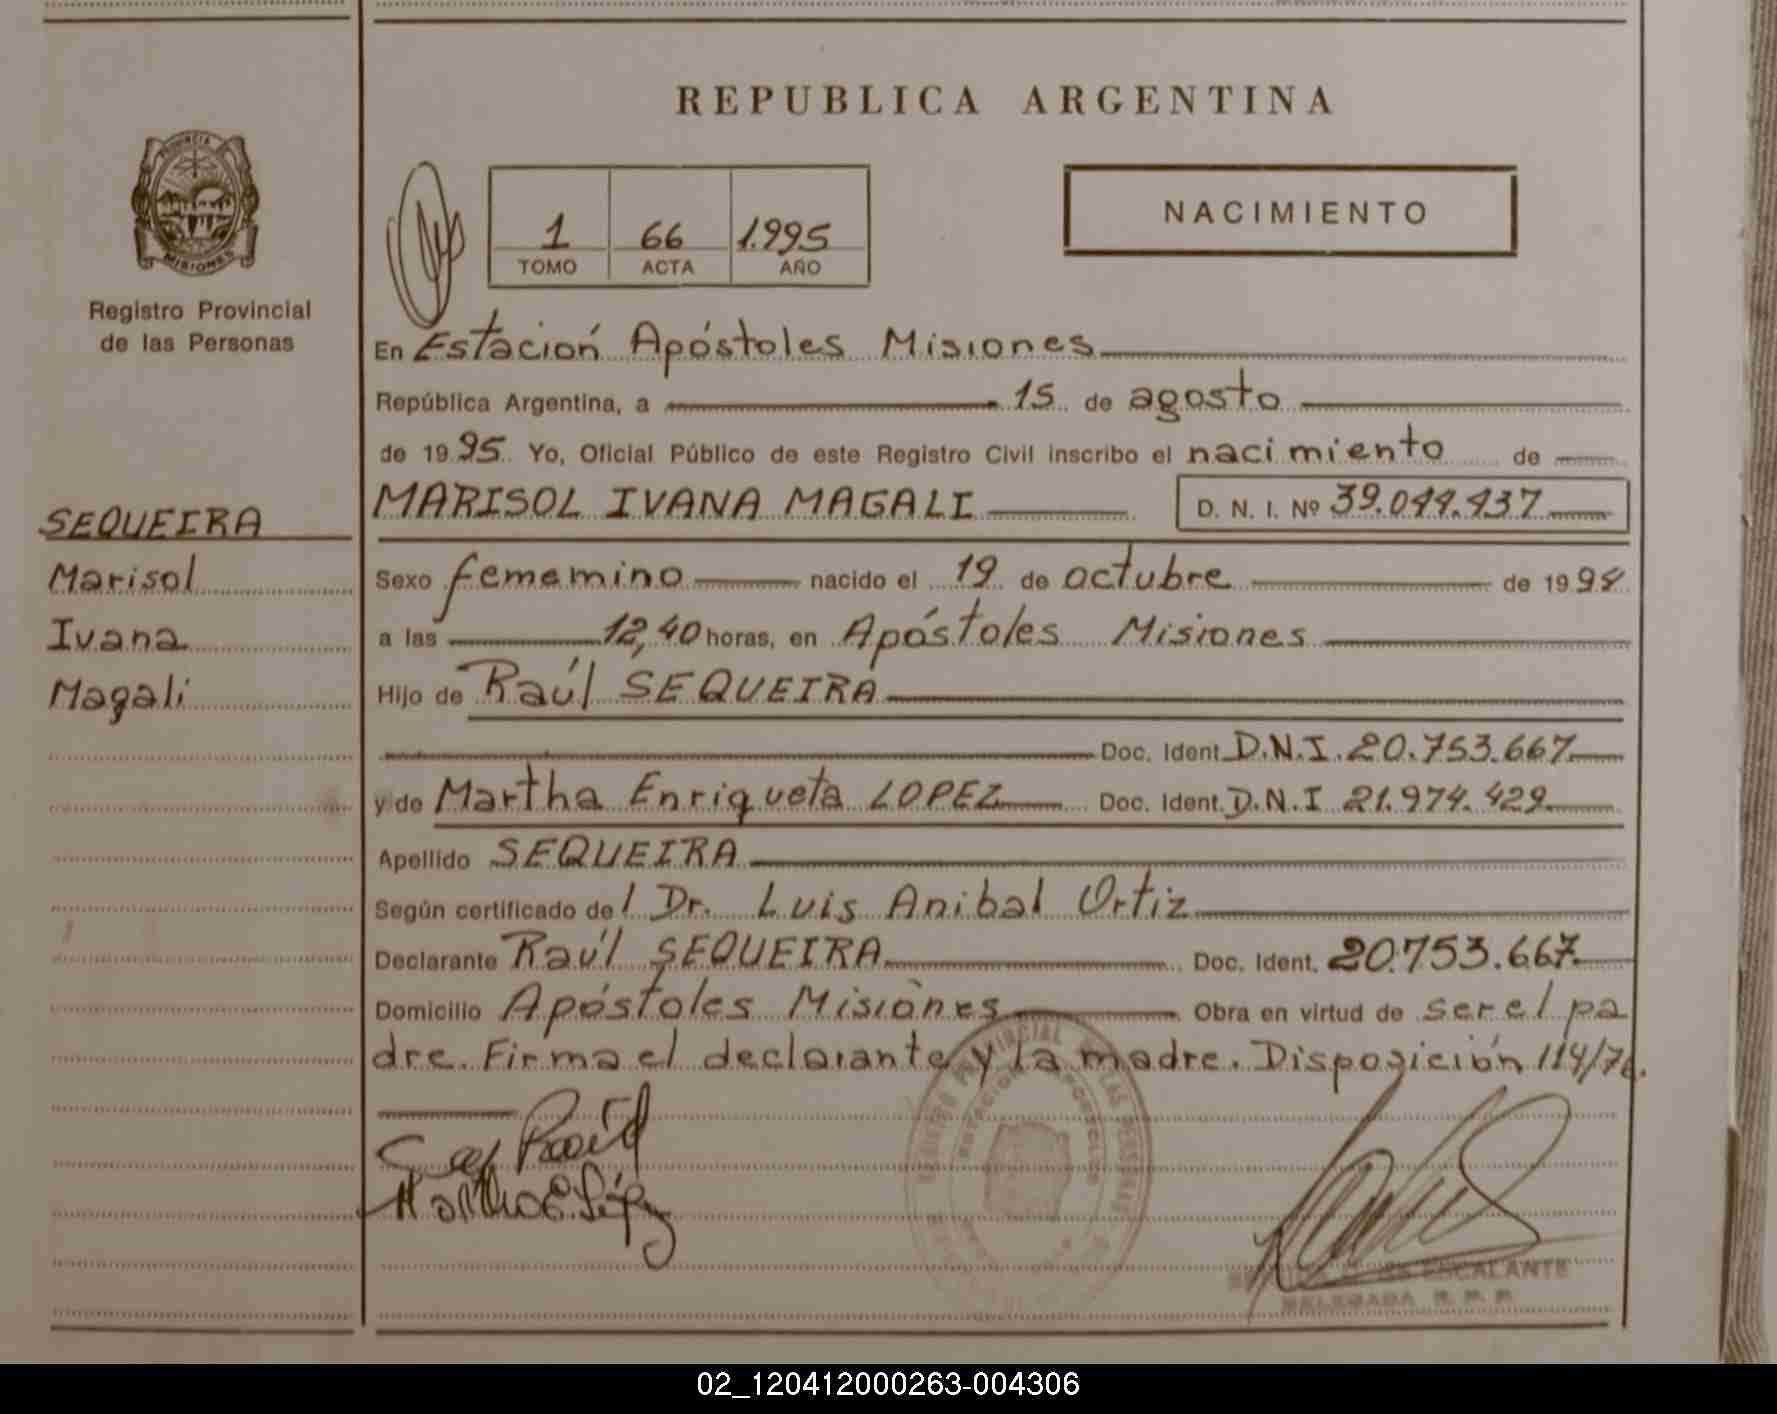 REPUBLICA ARGENTINA
PROVINCIA
MISIONES
Registro Provincial
de las Personas
1 66 1.995
TOMO ACTA AÑO
NACIMIENTO
En Estación Apóstoles Misiones
República Argentina, a 15 de agosto
de 1995 Yo, Oficial Público de este Registro Civil inscribo el nacimiento de
MARISOL IVANA MAGALI D. N. I. Nº 39.044.437
SEQUEIRA
Marisol
Ivana
Magali
Sexo fememino nacido el 19 de octubre de 19
a las 12,40 horas, en Apóstoles Misiones
Hijo de Raúl SEQUEIRA
Doc. Ident. D.N.I. 20.753.667
y de Martha Enriqueta LOPEZ Doc. Ident. D.N.I 21.974.429
Apellido SEQUEIRA
Según certificado del Dr. Luis Anibal Ortiz
Declarante Raúl SEQUEIRA Doc. Ident. 20.753.667
Domicilio Apóstoles Misiones Obra en virtud de ser el pa
dre. Firma el declarante y la madre. Disposición 114/76.
Raúl
Martha E. López
REGISTRO PROVINCIAL DE LAS PERSONAS
ESTACION APOSTOLES
ESCALANTE
DELEGADA R. P. P.
02_120412000263-004306